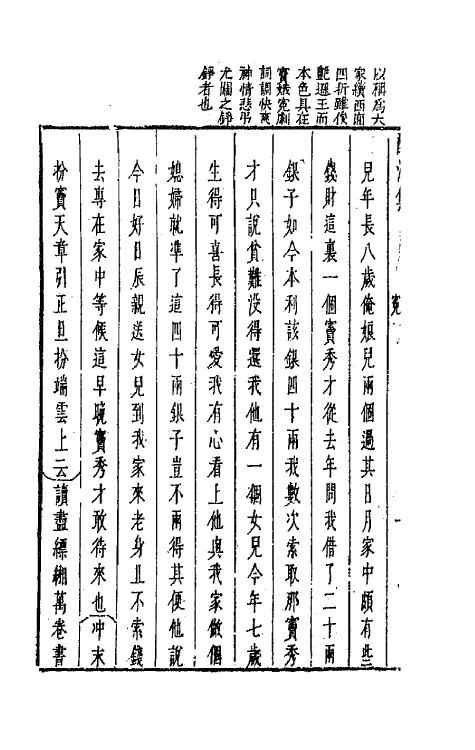 以稱爲大
家續西廂
四折雖俊
艶遜王而
本色具在
竇娥冤劇
詞調快爽
神情悲弔
尤關之錚
錚者也
兒年長八歲俺娘兒兩個過其日月家中頗有些
錢財這裏一個竇秀才從去年問我借了二十兩
銀子如今本利該銀四十兩我數次索取那竇秀
才只說貧難没得還我他有一個女兒今年七歲
生得可喜長得可愛我有心看上他與我家做個
媳婦就準了這四十兩銀子豈不兩得其便他說
今日好日辰親送女兒到我家來老身且不索錢
去專在家中等候這早晚竇秀才敢待來也冲末
扮竇天章引正旦扮端雲上云讀盡縹緗萬卷書